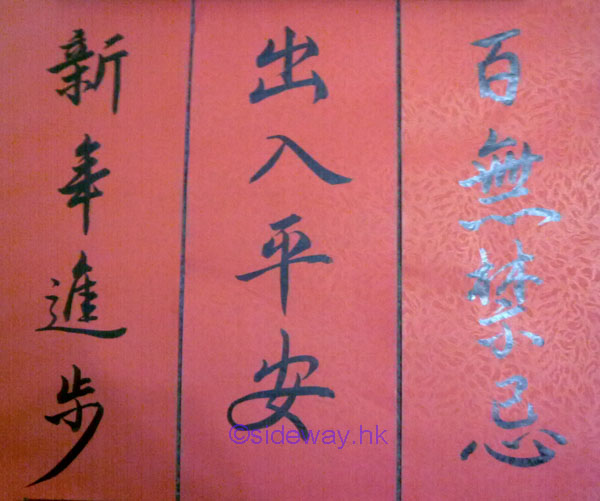 百無禁忌
出入平安
新年進步
©sideway.hk